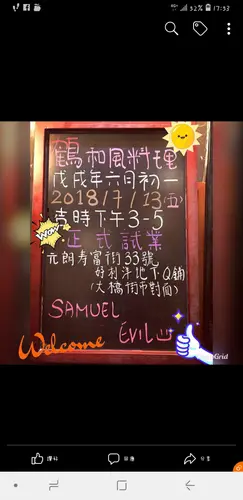 52% 17:53
鶴和風料理
戊戌年六月初一
2018/7/13(五)
吉時下午3-5
正式試業
元朗寿富街33號
好利洋地下Q鋪
(大橋街市對面)
SAMUEL
EVIL
WOW
Welcome
Grid
分享